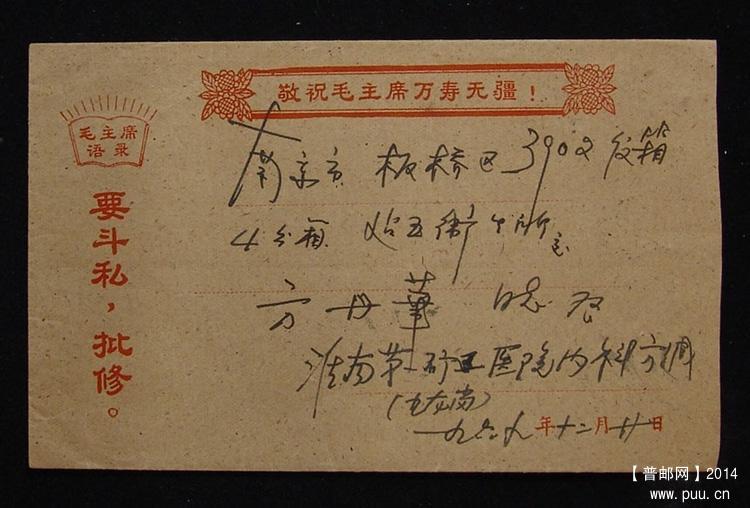 敬祝毛主席万寿无疆！
毛主席
语录
要斗私，批修。
南京市 板桥区 3902 信箱
4分箱
方丹華 同志 启
淮南第一矿工医院内科方绸
（九龙岗）
一九六九年十二月廿日
【普邮网】2014
www.puu.cn